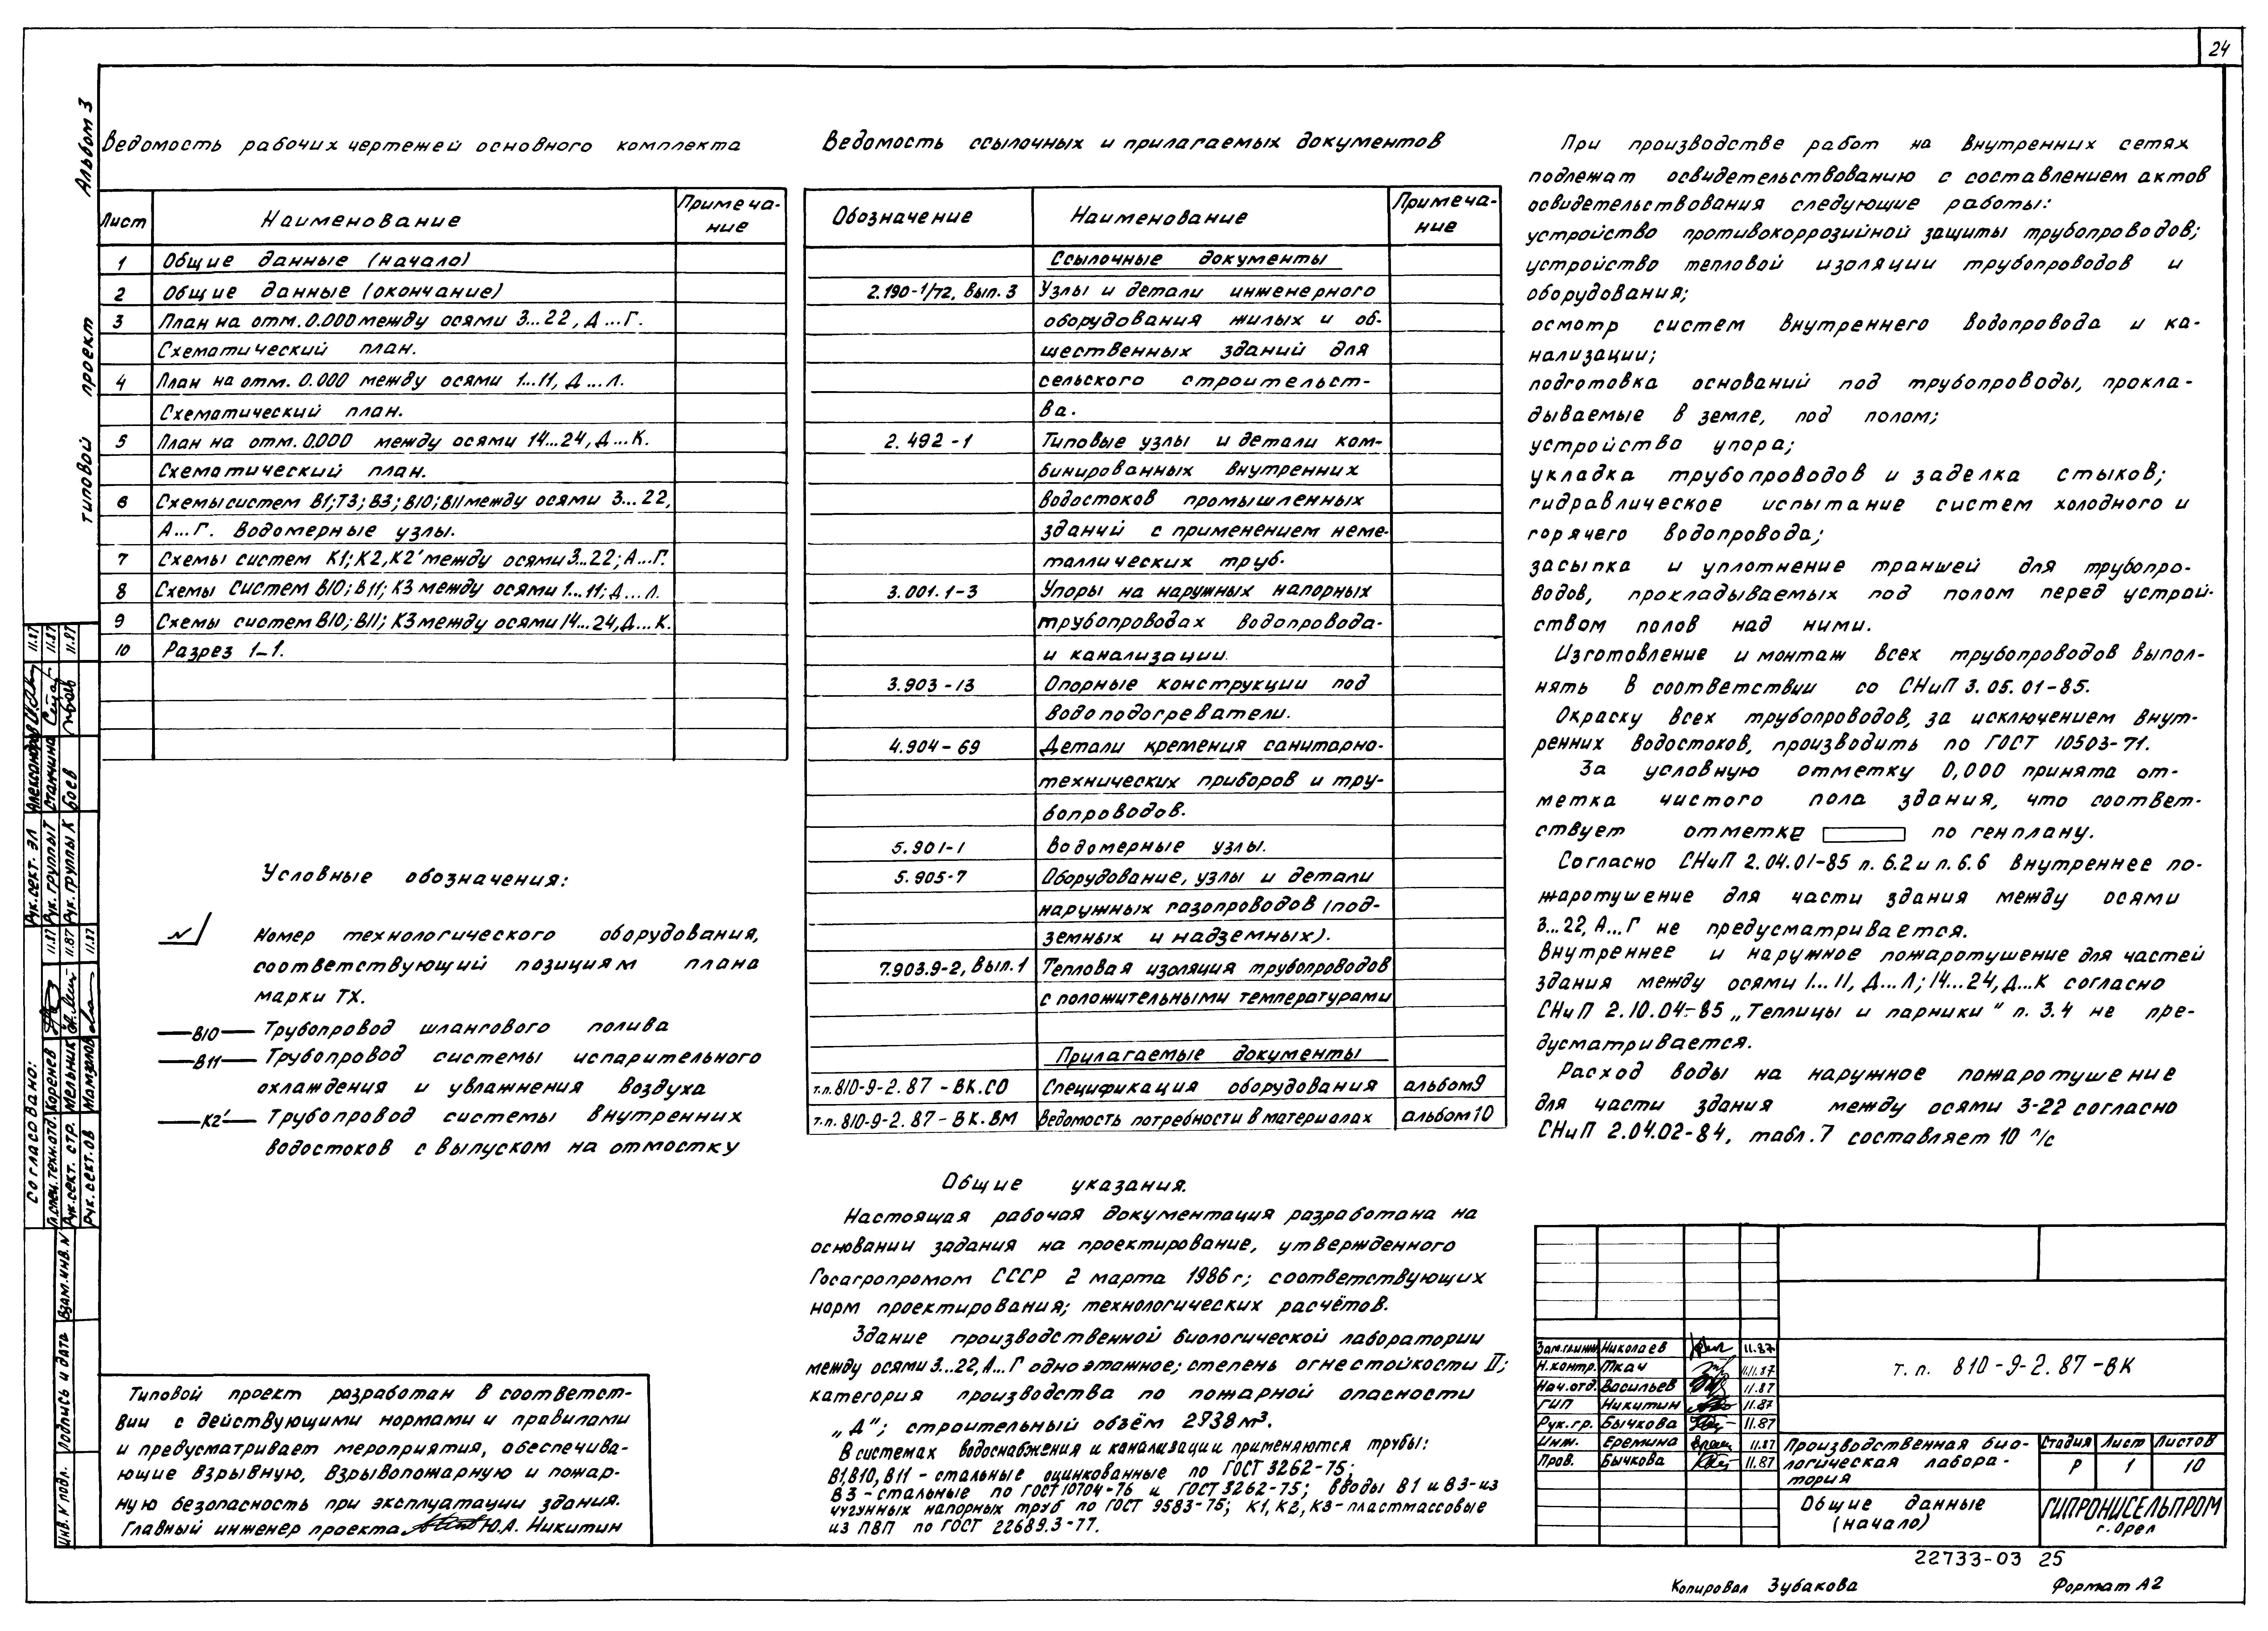 24
Альбом 3
типовой проект
Ведомость рабочих чертежей основного комплекта
Лист Наименование Примеча-
ние
1 Общие данные (начало)
2 Общие данные (окончание)
3 План на отм. 0.000 между осями 3...22, Д...Г.
Схематический план.
4 План на отм. 0.000 между осями 1...11, Д...Л.
Схематический план.
5 План на отм. 0.000 между осями 14...24, Д...К.
Схематический план.
6 Схемы систем В1; Т3; В3; В10; В11 между осями 3...22,
А...Г. Водомерные узлы.
7 Схемы систем К1; К2, К2' между осями 3...22; А...Г.
8 Схемы систем В10; В11; К3 между осями 1...11; Д...Л.
9 Схемы систем В10; В11; К3 между осями 14...24, Д...К.
10 Разрез 1-1.
Условные обозначения:
N Номер технологического оборудования,
соответствующий позициям плана
марки ТХ.
В10 Трубопровод шлангового полива
В11 Трубопровод системы испарительного
охлаждения и увлажнения воздуха
К2' Трубопровод системы внутренних
водостоков с выпуском на отмостку
Типовой проект разработан в соответст-
вии с действующими нормами и правилами
и предусматривает мероприятия, обеспечива-
ющие взрывную, взрывопожарную и пожар-
ную безопасность при эксплуатации здания.
Главный инженер проекта Ю.А. Никитин
Ведомость ссылочных и прилагаемых документов
Обозначение Наименование Примеча-
ние
Ссылочные документы
2.190-1/72, Вып. 3 Узлы и детали инженерного
оборудования жилых и об-
щественных зданий для
сельского строительст-
ва.
2.492-1 Типовые узлы и детали ком-
бинированных внутренних
водостоков промышленных
зданий с применением неме-
таллических труб.
3.001.1-3 Упоры на наружных напорных
трубопроводах водопровода-
и канализации.
3.903-13 Опорные конструкции под
водоподогреватели.
4.904-69 Детали крепения санитарно-
технических приборов и тру-
бопроводов.
5.901-1 Водомерные узлы.
5.905-7 Оборудование, узлы и детали
наружных газопроводов (под-
земных и надземных).
7.903.9-2, Вып.1 Тепловая изоляция трубопроводов
с положительными температурами
Прилагаемые документы
т.п. 810-9-2.87-ВК.СО Спецификация оборудования альбом 9
т.п. 810-9-2.87-ВК.ВМ Ведомость потребности в материалах альбом 10
Общие указания.
Настоящая рабочая документация разработана на
основании задания на проектирование, утвержденного
Госагропромом СССР 2 марта 1986г; соответствующих
норм проектирования; технологических расчётов.
Здание производственной биологической лаборатории
между осями 3...22, А...Г одноэтажное; степень огнестойкости II;
категория производства по пожарной опасности
„Д"; строительный объём 2938м³.
В системах водоснабжения и канализации применяются трубы:
В1 В10, В11 - стальные оцинкованные по ГОСТ 3262-75;
В3 - стальные по ГОСТ 10704-76 и ГОСТ 3262-75; вводы В1 и В3-из
чугунных напорных труб по ГОСТ 9583-75; К1, К2, К3-пластмассовые
из ПВП по ГОСТ 22689.3-77.
При производстве работ на внутренних сетях
подлежат освидетельствованию с составлением актов
освидетельствования следующие работы:
устройство противокоррозийной защиты трубопроводов;
устройство тепловой изоляции трубопроводов и
оборудования;
осмотр систем внутреннего водопровода и ка-
нализации;
подготовка оснований под трубопроводы, прокла-
дываемые в земле, под полом;
устройство упора;
укладка трубопроводов и заделка стыков;
гидравлическое испытание систем холодного и
горячего водопровода;
засыпка и уплотнение траншей для трубопро-
водов, прокладываемых под полом перед устрой-
ством полов над ними.
Изготовление и монтаж всех трубопроводов выпол-
нять в соответствии со СНиП 3.05.01-85.
Окраску всех трубопроводов, за исключением внут-
ренних водостоков, производить по ГОСТ 10503-71.
За условную отметку 0,000 принята от-
метка чистого пола здания, что соответ-
ствует отметке по генплану.
Согласно СНиП 2.04.01-85 п. 6.2 и п. 6.6 внутреннее по-
жаротушение для части здания между осями
3...22, А...Г не предусматривается.
Внутреннее и наружное пожаротушение для частей
здания между осями 1...11, Д...Л; 14...24, Д...К согласно
СНиП 2.10.04-85 „Теплицы и парники" п. 3.4 не пре-
дусматривается.
Расход воды на наружное пожаротушение
для части здания между осями 3-22 согласно
СНиП 2.04.02-84, табл. 7 составляет 10 л/с
Зам.гл.инж. Николаев 11.87
Н.контр. Ткач 11.87
Нач.отд. Васильев 11.87
ГИП Никитин 11.87
Рук.гр. Бычкова 11.87
Инж. Еремина 11.87
Пров. Бычкова 11.87
т.п. 810-9-2.87-ВК
Производственная био-
логическая лабора-
тория
Стадия Лист Листов
Р 1 10
Общие данные
(начало)
ГИПРОНИСЕЛЬПРОМ
г. Орел
22733-03 25
Копировал Зубакова Формат А2
Рук.сект. ЭЛ 11.87
Рук. группы Т Станчина 11.87
Рук. группы К Боев 11.87
Согласовано:
Гл.спец.техн.отд. Коренев 11.87
Рук.сект. стр. Мельник 11.87
Рук.сект.ов Мамзалов 11.87
Взам.инв. N
Подпись и дата
Инв. N подл.